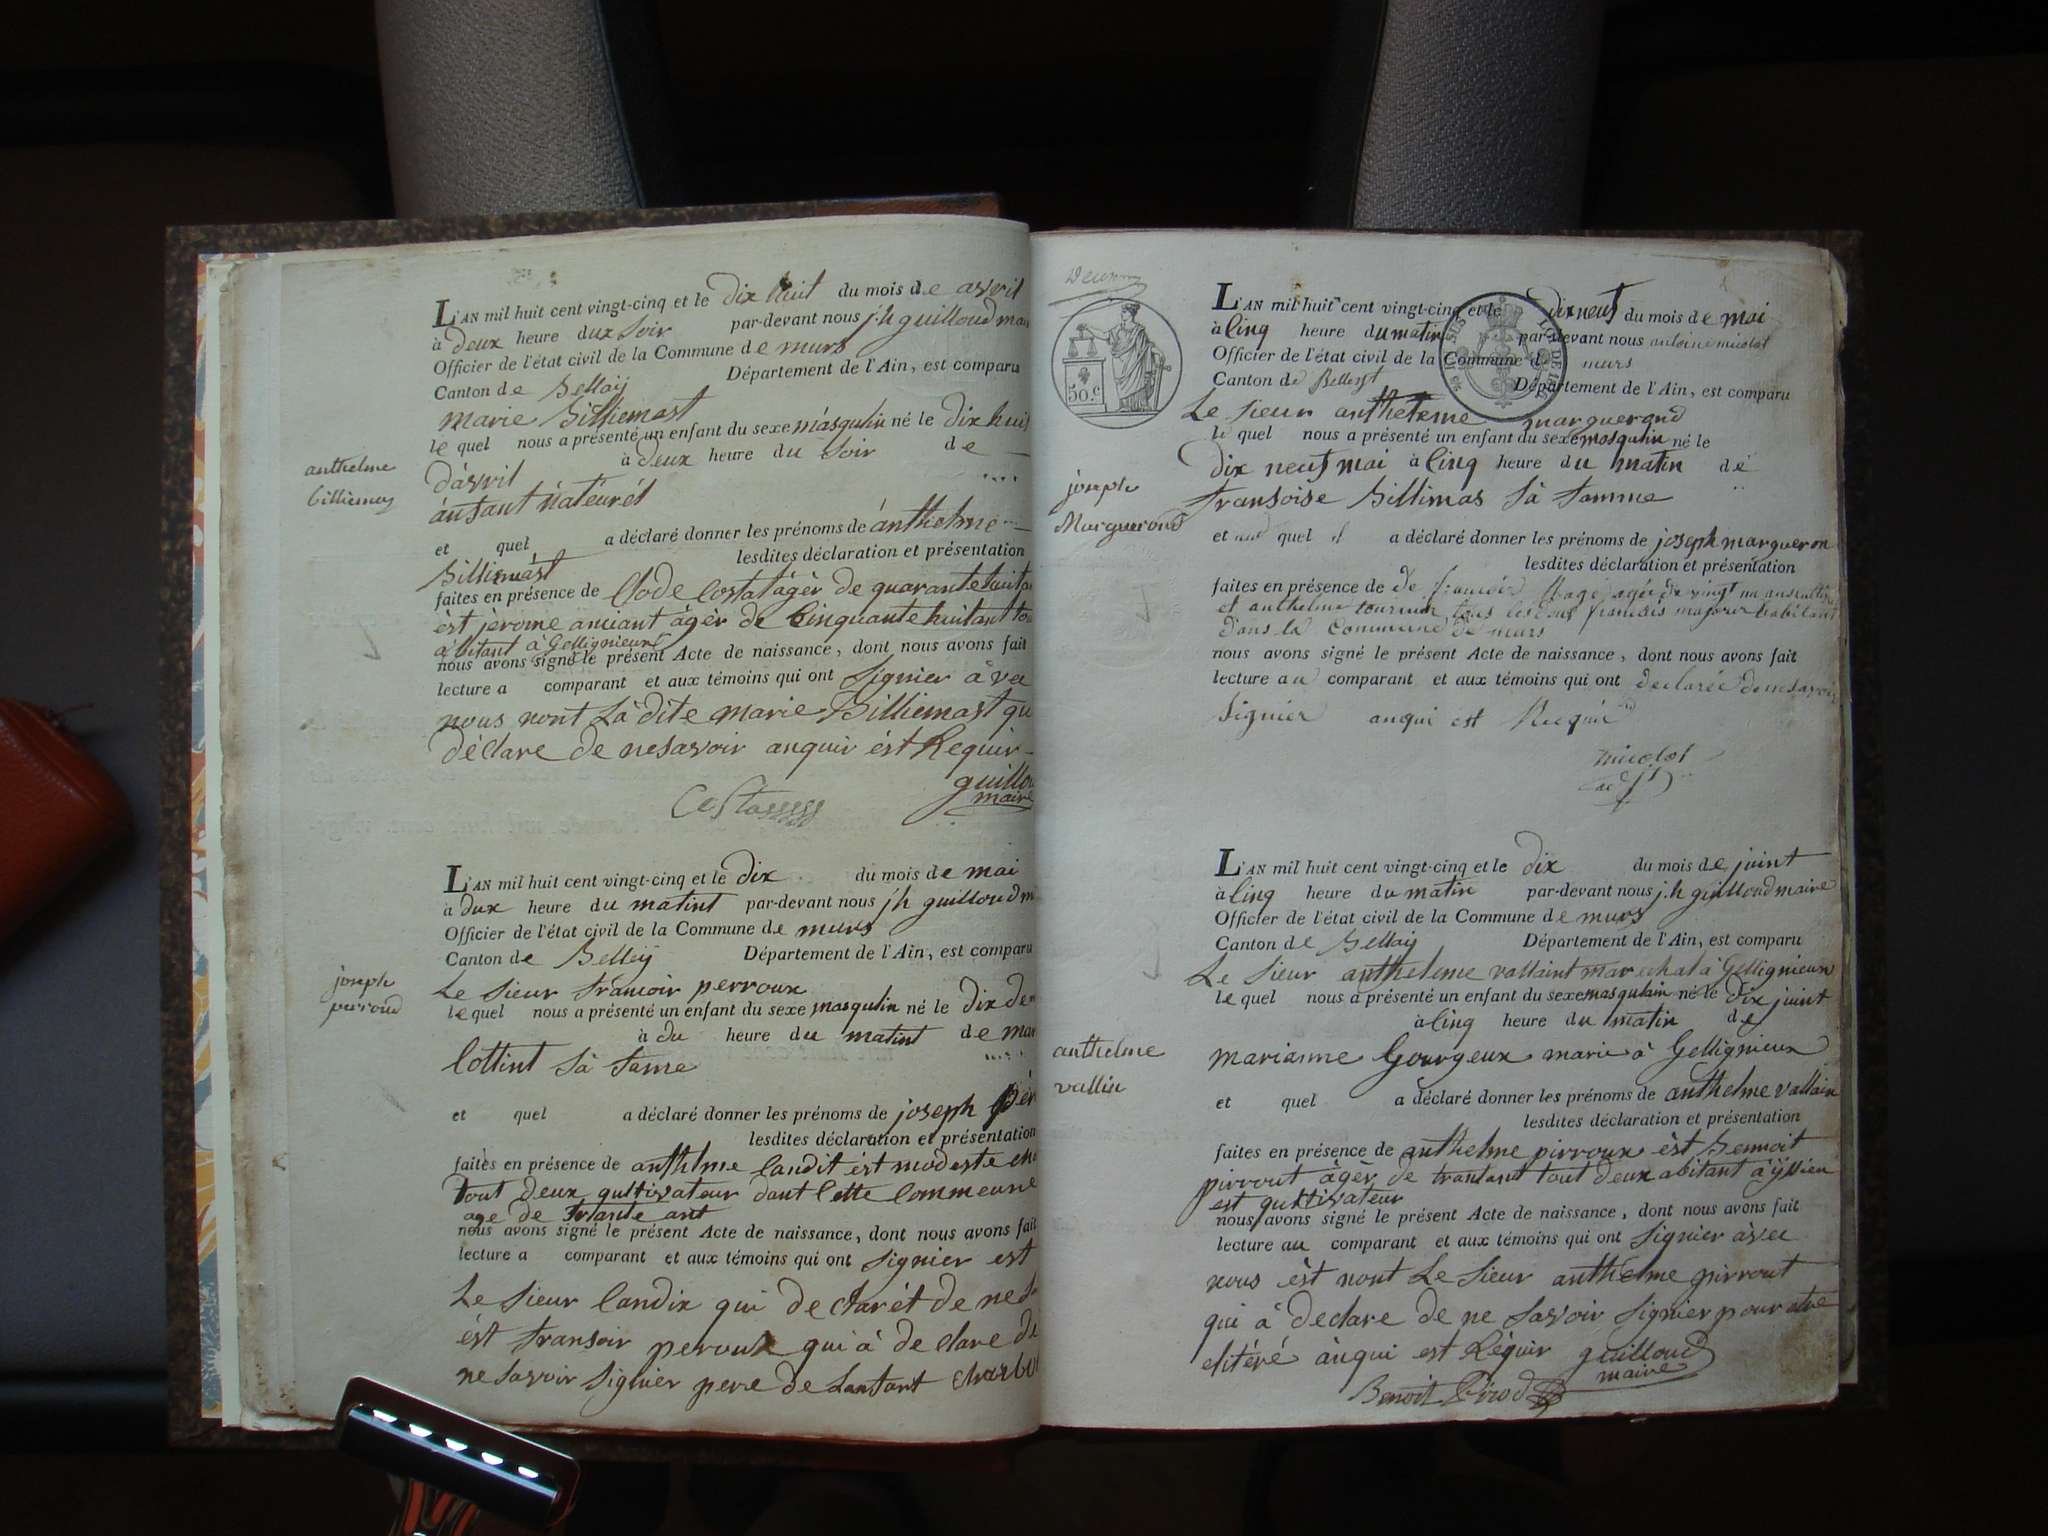 L'AN mil huit cent vingt-cinq et le dix huit du mois de avril
à deux heure dux soir par-devant nous j.h guilloud
Officier de l'état civil de la Commune de murs
Canton de Bellaÿ Département de l'Ain, est comparu
marie Billiemast
le quel nous a présenté un enfant du sexe masqulin né le dix huit
d'avril à deux heure du soir de
anthelme
billiemas
anfant nateurél
et quel a déclaré donner les prénoms de anthelme
Billiemast lesdites déclaration et présentation
faites en présence de Clode Costat àgèr de quarante huit
èst jèrome amiant àgèr de Cinquante huit ant
àbitant à Gellignieux
nous avons signé le présent Acte de naissance, dont nous avons fait
lecture a comparant et aux témoins qui ont signier àvec
nous nont Là dite marie Billiemast
déclare de ne savoir anquir èst Requir
guillou
maire
L'AN mil huit cent vingt-cinq et le dix du mois de mai
à dux heure du matint par-devant nous j.h guilloud
Officier de l'état civil de la Commune de murs
Canton de Belleÿ Département de l'Ain, est comparu
joseph
perroud
Le sieur francoir perroux
le quel nous a présenté un enfant du sexe masqulin né le dix
à du heure du matint de
Cottint sà fame
et quel a déclaré donner les prénoms de joseph
lesdites déclaration et présentation
faites en présence de anthelme Candit èst modeste
tout deux qultivateur dant Cette Commeune
age de trante ant
nous avons signé le présent Acte de naissance, dont nous avons fait
lecture a comparant et aux témoins qui ont signier est
Le sieur Candix qui declarét de ne
èst fransoir peroux qui à declare
ne savoir signier pere de Lantant
50.c
L'AN mil huit cent vingt-cinq et le dix neuf du mois de mai
à Cinq heure du matin par-devant nous antoine micolat
Officier de l'état civil de la Commune de murs
Canton de Département de l'Ain, est comparu
Le sieur antheleme marguerond
le quel nous a présenté un enfant du sexe masqulin né le
dix neuf mai à Cinq heure du matin de
joseph
Marguerond
fransoise Billimas sà famme
et quel a déclaré donner les prénoms de joseph margueron
lesdites déclaration et présentation
faites en présence de de françois agér de vingt un ans
et anthelme tournier tous les deux francais majeurs habitant
dans la commune de murs
nous avons signé le présent Acte de naissance, dont nous avons fait
lecture au comparant et aux témoins qui ont declarée de ne savoir
signier anqui est Requir
micolat
L'AN mil huit cent vingt-cinq et le dix du mois de juint
à Cinq heure du matin par-devant nous j.h guilloud maire
Officier de l'état civil de la Commune de murs
Canton de Bellaÿ Département de l'Ain, est comparu
Le sieur antheleme vallaint marechal à Gellignieux
le quel nous a présenté un enfant du sexe masqulain né le dix juint
à Cinq heure du matin de
anthelme
vallin
marianne Gourgeux marie à Gellignieux
et quel a déclaré donner les prénoms de anthelme vallain
lesdites déclaration et présentation
faites en présence de anthelme pirroux èst Bennoit
pirrout àgèr de trantant tout deux abitant à ÿssieu
est qultivateur
nous avons signé le présent Acte de naissance, dont nous avons fait
lecture au comparant et aux témoins qui ont signier àvec
nous èst nont Le sieur anthelme pirrout
qui à declare de ne savoir signier pour etre
elitéré ànqui est Réquir guilloud
maire
Benoit Pirod